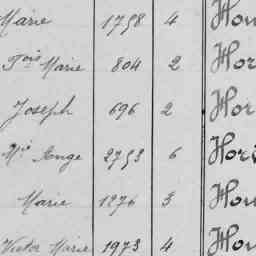 Marie 1758 4 Hou
Fois Marie 804 2 Hor
Joseph 696 2 Hor
Mie Ange 2753 6 Hor
Marie 1276 3 Hou
Victor Marie 1973 4 Hou